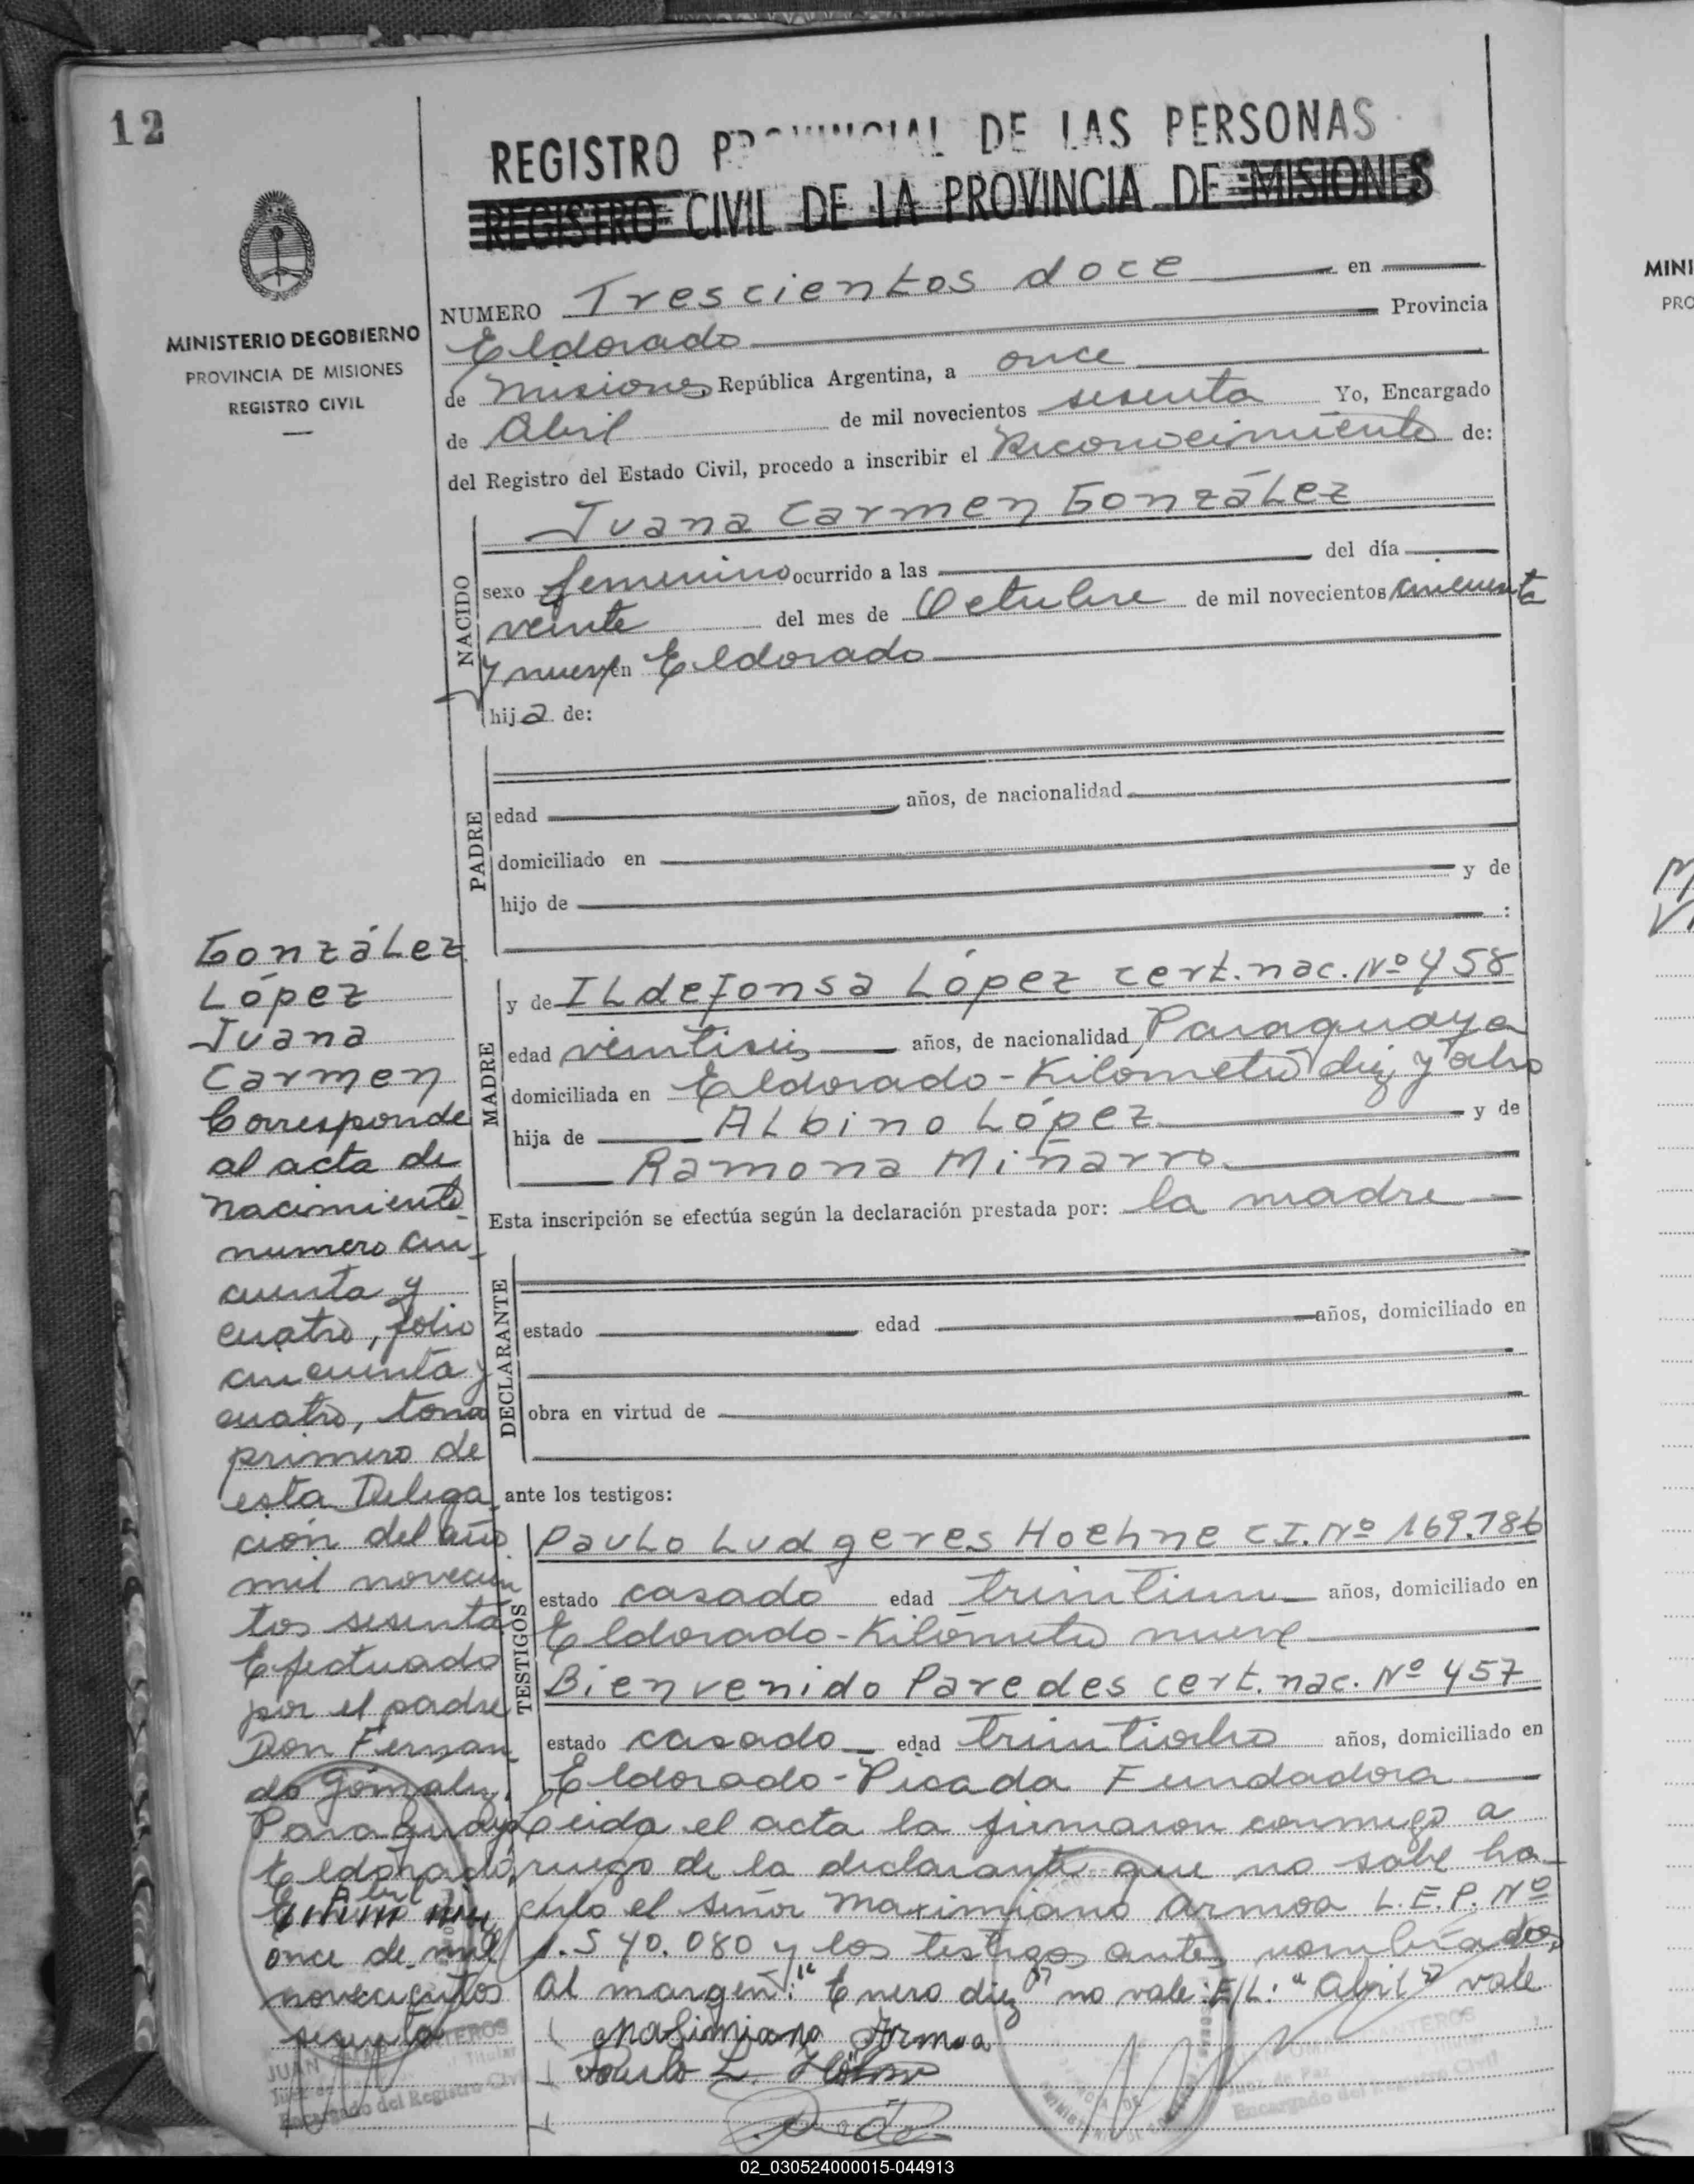 12
REGISTRO PROVINCIAL DE LAS PERSONAS
REGISTRO CIVIL DE LA PROVINCIA DE MISIONES
MINISTERIO DE GOBIERNO
PROVINCIA DE MISIONES
REGISTRO CIVIL
NUMERO Trescientos doce en
Eldorado Provincia
de Misiones República Argentina, a once
de Abril de mil novecientos sesenta Yo, Encargado
del Registro del Estado Civil, procedo a inscribir el Reconocimiento de:
NACIDO
Juana Carmen González
sexo femenino ocurrido a las del día
veinte del mes de Octubre de mil novecientos cincuenta
y nueve en Eldorado
hija de:
PADRE
edad años, de nacionalidad
domiciliado en
hijo de y de
:
MADRE
y de ILdefonsa López cert. nac. Nº 458
edad veintiseis años, de nacionalidad Paraguaya
domiciliada en Eldorado - Kilometro diez y ocho
hija de Albino López y de
Ramona Miñarro
Esta inscripción se efectúa según la declaración prestada por: la madre
DECLARANTE
estado edad años, domiciliado en
obra en virtud de
ante los testigos:
TESTIGOS
Paulo Ludgeres Hoehne C.I. Nº 169.786
estado casado edad treintiun años, domiciliado en
Eldorado - Kilómetro nueve
Bienvenido Paredes cert. nac. Nº 457
estado casado edad treintiocho años, domiciliado en
Eldorado - Picada Fundadora
Leida el acta la firmaron conmigo a
ruego de la declarante que no sabe ha-
cerlo el señor Maximiano Armoa L.E.P. Nº
1.540.080 y los testigos antes nombrados.
Al margen: "Enero diez" no vale: E/L: "Abril" vale
Maximiano Armoa
Paulo L. Höhne
González
López
Juana
Carmen
Corresponde
al acta de
nacimiento
numero cin-
cuenta y
cuatro, folio
cincuenta y
cuatro, tomo
primero de
esta Delega-
ción del año
mil novecien-
tos sesenta
Efectuado
por el padre
Don Fernan-
do González.
Paraguayo
Eldorado,
Abril
Enero diez
once de mil
novecientos
sesenta
JUAN OMAR MANTEROS
Juez de Paz Titular
Encargado del Registro Civil
JUAN OMAR MANTEROS
Juez de Paz
Encargado del Registro Civil
MINI
PRO
02_030524000015-044913